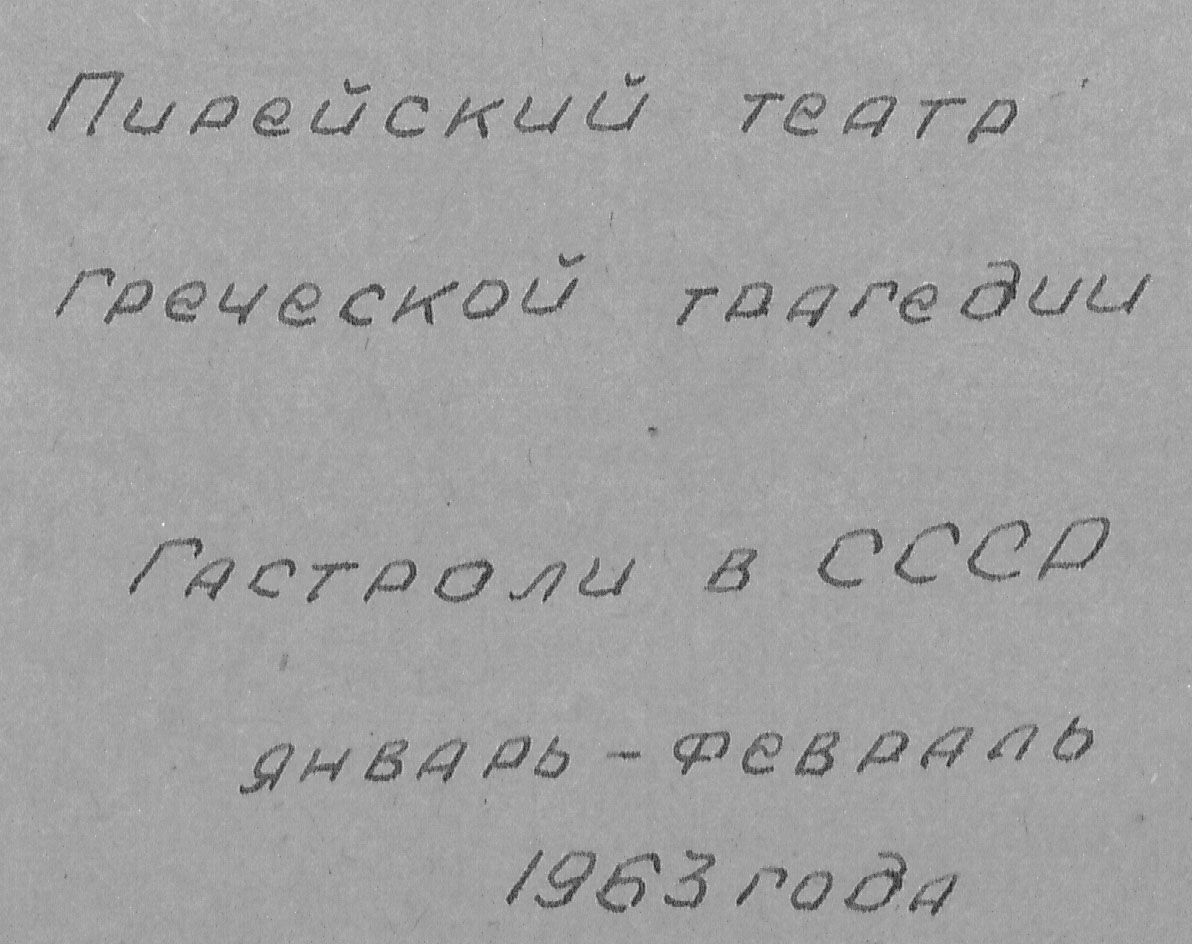 Пирейский театр
греческой трагедии
Гастроли в СССР
январь - февраль
1963 года